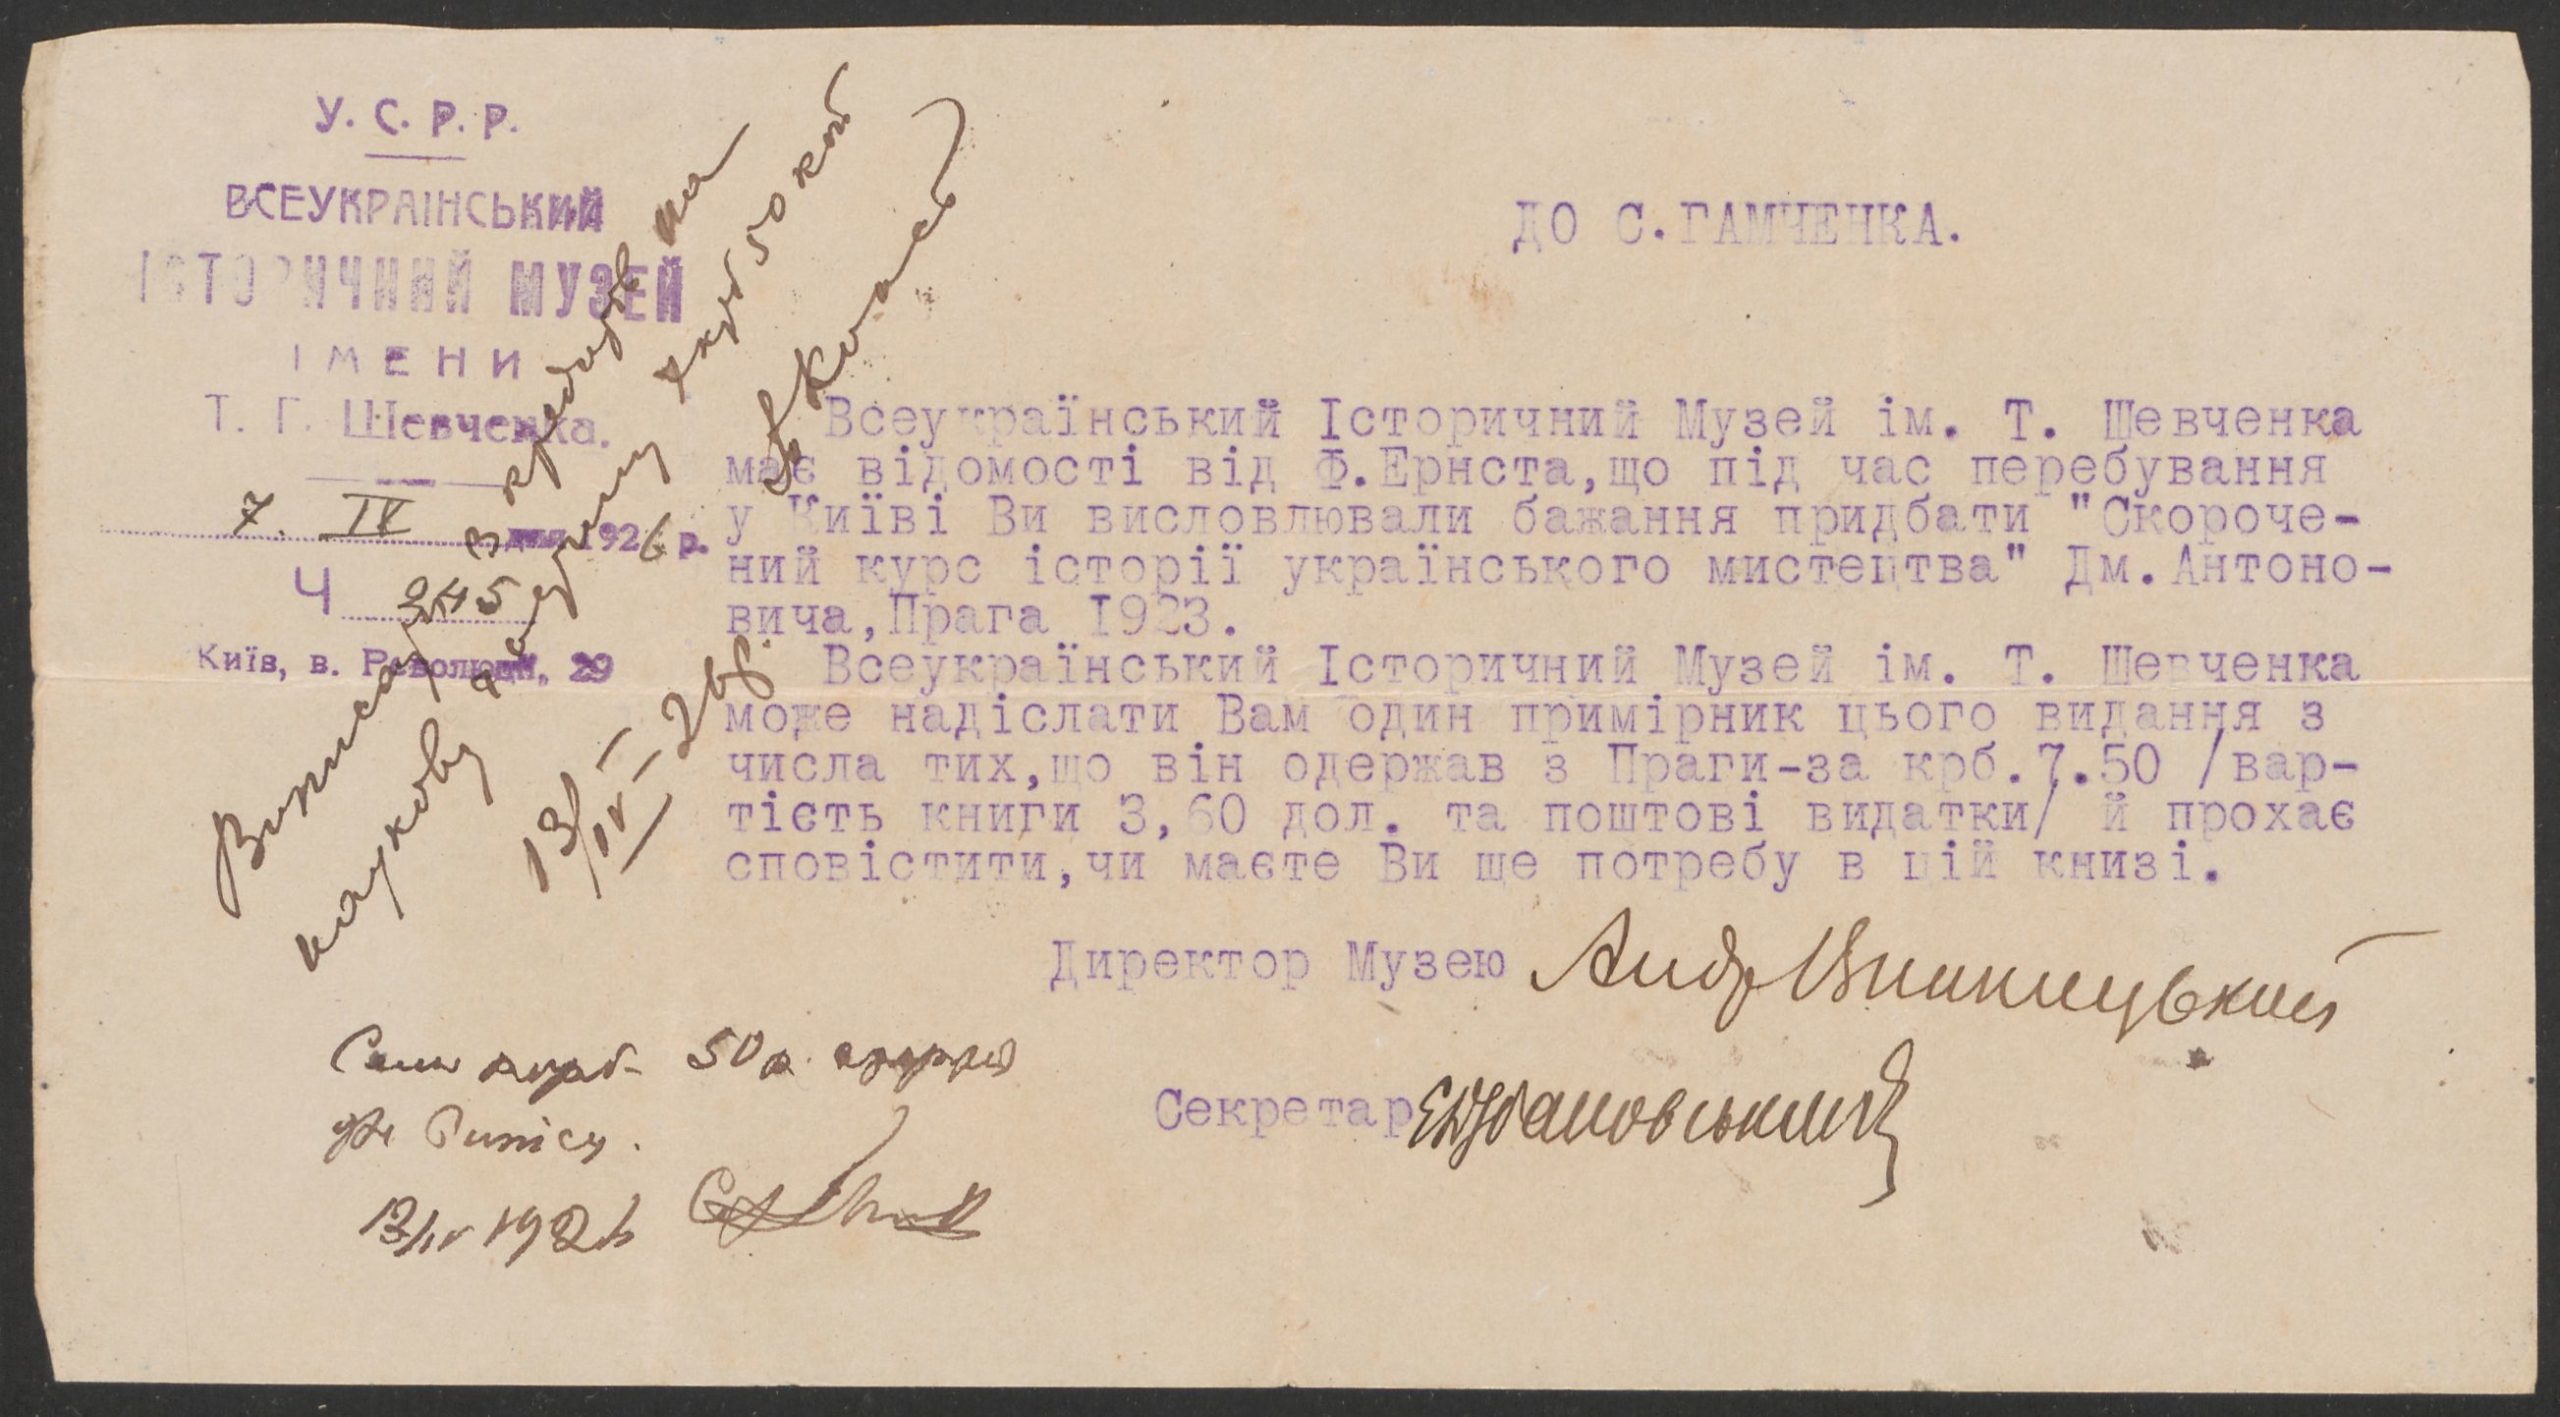 У. С. Р. Р.
ВСЕУКРАІНСЬКИЙ
ІСТОРИЧНИЙ МУЗЕЙ
ІМЕНИ
Т. Г. Шевченка.
7. IV дня 1926 р.
Ч
Київ, в. Революції, 29
ДО С.ГАМЧЕНКА.
Всеукраїнський Історичний Музей ім. Т. Шевченка
має відомості від Ф.Ернста,що під час перебування
у Київі Ви висловлювали бажання придбати "Скороче-
ний курс історії українського мистецтва" Дм.Антоно-
вича,Прага 1923.
Всеукраїнський Історичний Музей ім. Т. Шевченка
може надіслати Вам один примірник цього видання з
числа тих,що він одержав з Праги-за крб.7.50 /вар-
тість книги 3,60 дол. та поштові видатки/ й прохає
сповістити,чи маєте Ви ще потребу в цій книзі.
Директор Музею Андр Винницький
Секретар
Виписати з кредитів на
наукову 7 крб 50 коп
13/IV-26р.
Сім карб. 50 к. одержав
13/IV 1926